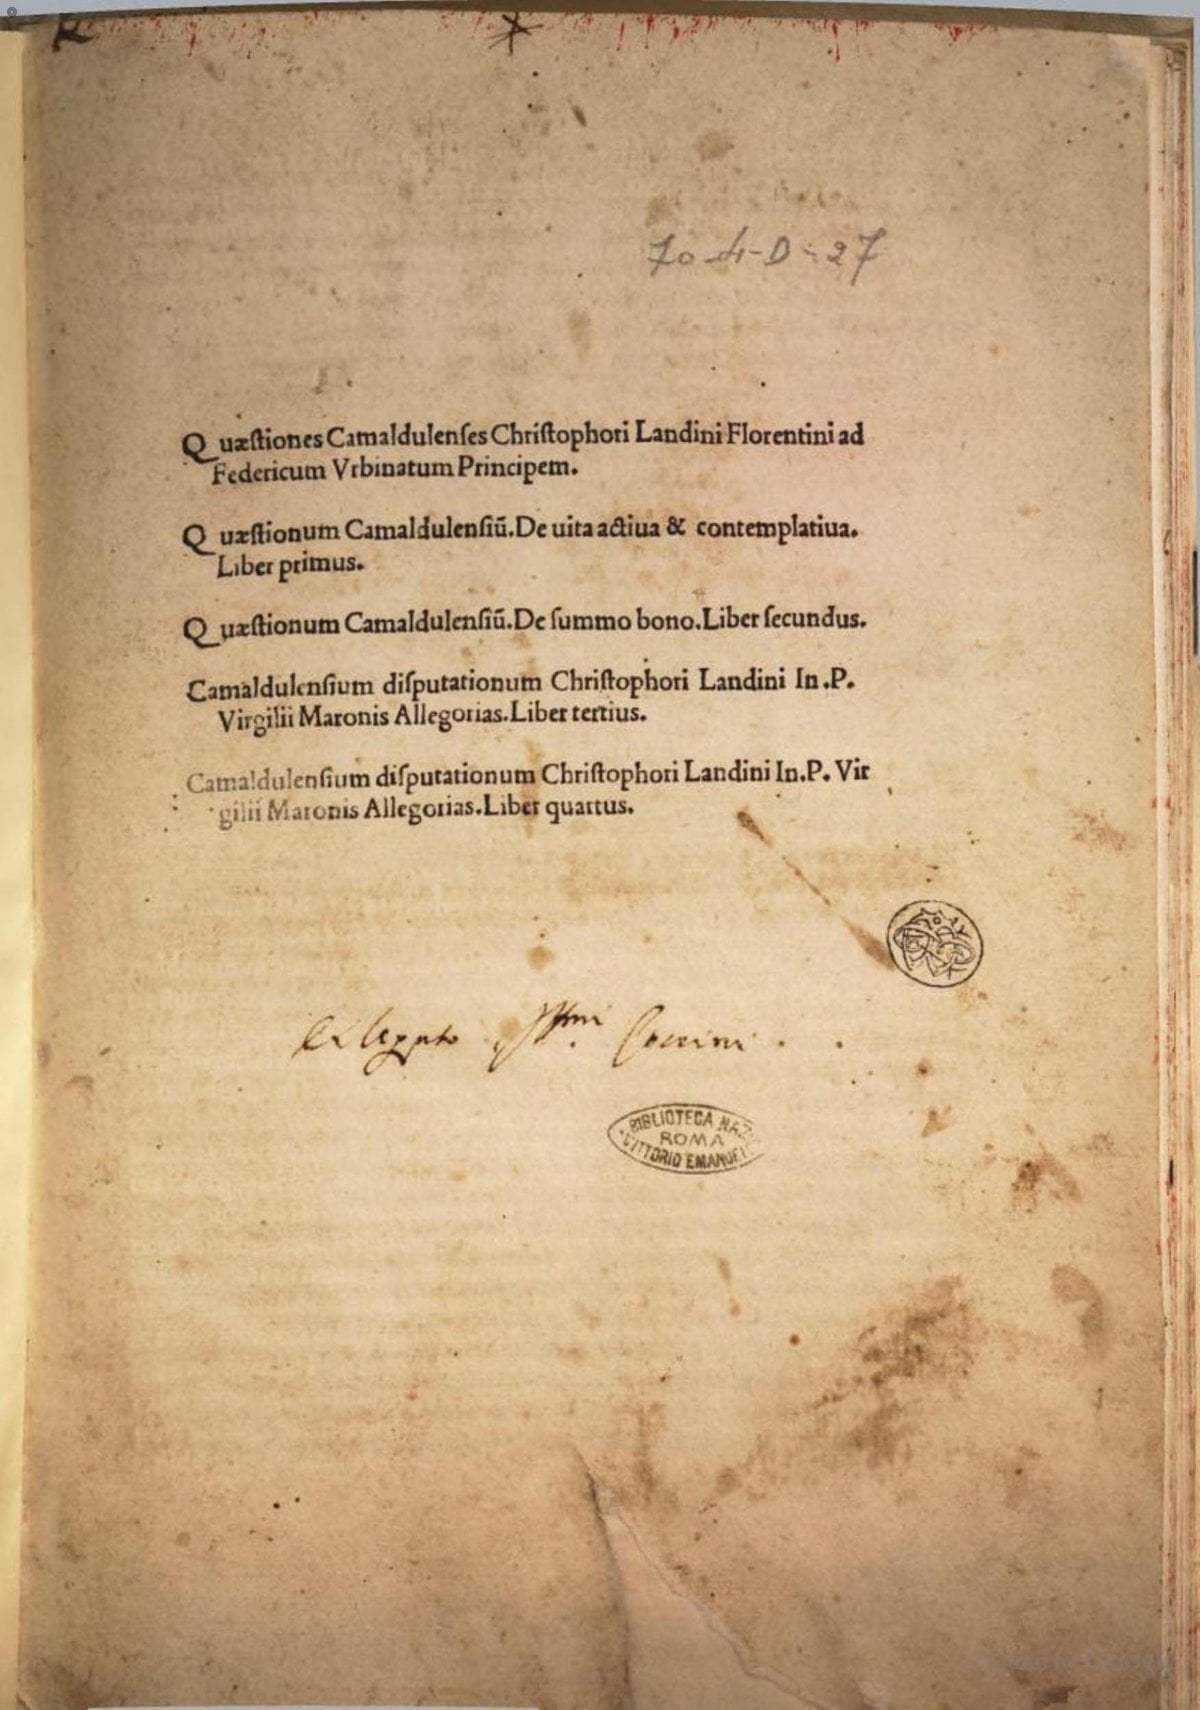 70-4-D-27
Quæſtiones Camaldulenſes Chriſtophori Landini Florentini ad
Federicum Vrbinatum Principem.
Quæſtionum Camaldulenſiũ.De uita actiua & contemplatiua.
Liber primus.
Quæſtionum Camaldulenſiũ.De ſummo bono.Liber ſecundus.
Camaldulenſium diſputationum Chriſtophori Landini In.P.
Virgilii Maronis Allegorias.Liber tertius.
Camaldulenſium diſputationum Chriſtophori Landini In.P. Vir
gilii Maronis Allegorias.Liber quartus.
BIBLIOTECA NAZ
ROMA
VITTORIO EMANUE